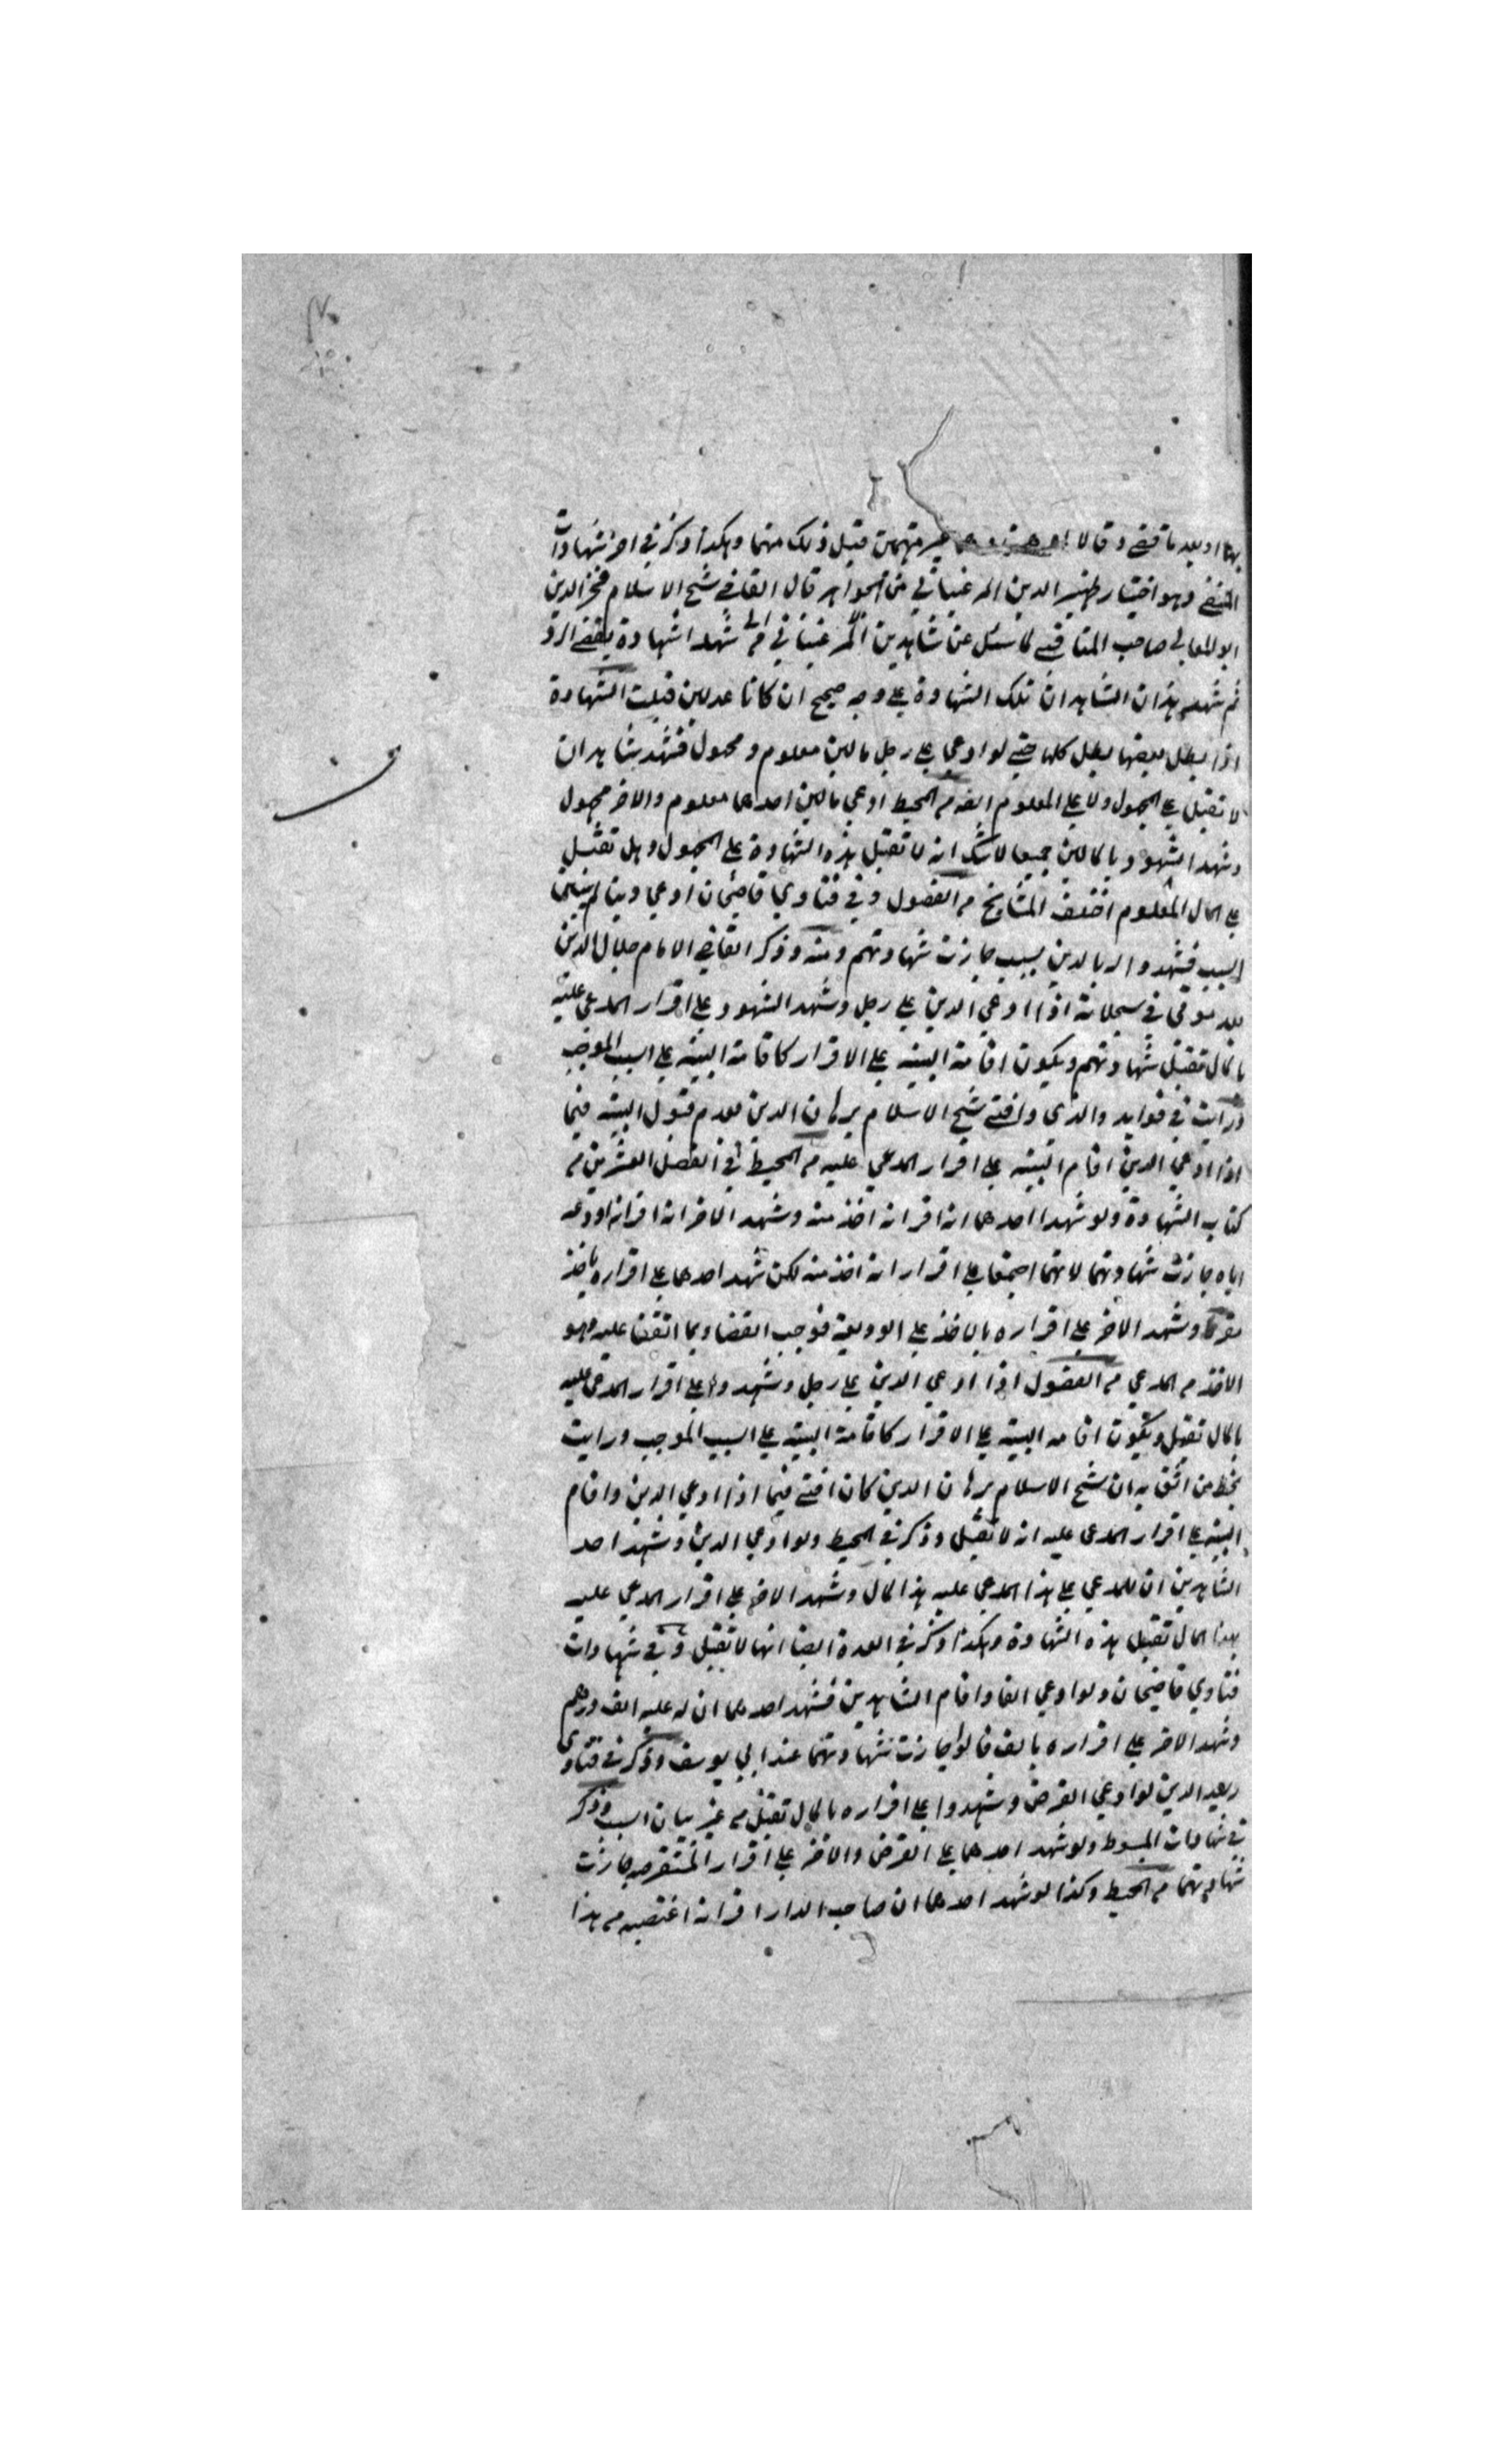 بها او بعد ما قضى وقالا غير متهمين قبل ذلك منهما وهكذا ذكر في اخر شهادات
المنتقى وهو اختيار ظهير الدين المرغيناني من الجواهر قال القاضي شيخ الاسلام فخر الدين
ابو المعالي صاحب المناقب لما سئل عن شاهدين شهدا شهادة الرد
ثم شهد هذان الشاهدان تلك الشهادة على وجه صحيح ان كانا عدلين قبلت الشهادة
اذا بطل بعضها بطل كلها حتى لو ادعى على رجل مالين معلوم ومجهول فشهد شاهدان
لا تقبل على المجهول ولا على المعلوم ايضا من المحيط ادعى مالين احدهما معلوم والاخر مجهول
وشهد الشهود بالمالين جميعا لا شك انه لا تقبل هذه الشهادة على المجهول وهل تقبل
على المال المعلوم اختلف المشايخ من الفصول وفي فتاوي قاضيخان ادعى دينا
السبب فشهدوا له بالدين بسبب جازت شهادتهم ومنه وذكر القاضي الامام جلال الدين
في سجلاته اذا ادعي الدين على رجل وشهد الشهود على اقرار المدعى عليه
بالمال تقبل شهادتهم ويكون اقامة البينه على الاقرار كاقامة البينه على السبب الموجب
ورايت في فوايد والدى وافتى شيخ الاسلام برهان الدين بعدم قبول البينه فيما
اذا ادعي الدين اقام البينه على اقرار المدعي عليه من المحيط في الفصل العشرين من
كتاب الشهادة ولو شهدا احدهما انه اقر انه اخذ منه وشهد الاخر انه اقر انه اودعه
اياه جازت شهادتهما لانهما اجتمعا على اقرار انه اخذ منه لكن شهد احدهما على اقراره باخذ
وشهد الاخر على اقراره بالاخذ على الوديعة فوجب القضاء بما اتفقا عليه وهو
الاخذ من المدعي من الفصول اذا ادعي الدين على رجل وشهدوا على اقرار المدعى عليه
بالمال تقبل ويكون اقامه البينه على الاقرار كاقامة البينه على السبب الموجب ورايت
بخط من اثق به ان شيخ الاسلام برهان الدين كان افتى فيما اذا ادعي الدين واقام
البينه على اقرار المدعى عليه انه لا تقبل وذكر في المحيط ولو ادعي الدين وشهد احد
الشاهدين ان للمدعي على هذا المدعي عليه هذا المال وشهد الاخر على اقرار المدعي عليه
بهذا المال تقبل هذه الشهادة وهكذا ذكر في العدة ايضا انها لا تقبل وفي شهادات
فتاوي قاضيخان ولو ادعي الفا واقام الشاهدين فشهد احدهما ان له عليه الف درهم
وشهد الاخر على اقراره بالف قالوا جازت شهادتهما عند ابي يوسف وذكر في فتاوى
رشيد الدين لو ادعي القرض وشهدوا على اقراره بالمال تقبل من غير بيان السبب وذكر
في شهادات المبسوط ولو شهد احدهما على القرض والاخر على اقرار المستقرض جازت
شهادتهما من المحيط وكذا لو شهد احدهما ان صاحب الدار اقر انه اغتصبه من هذا